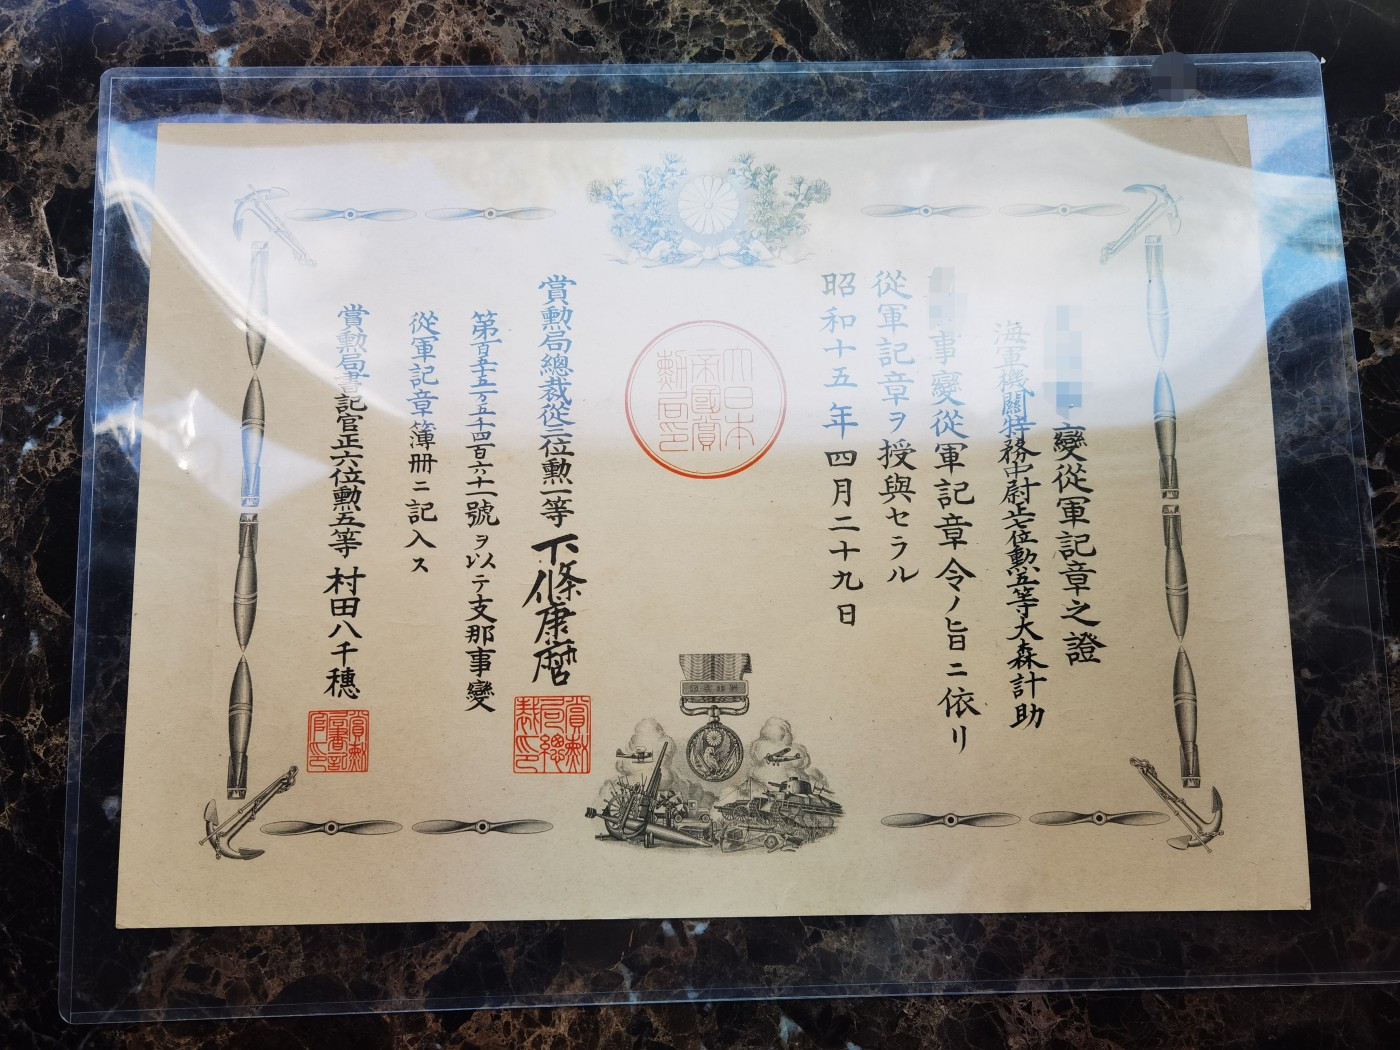 變從軍記章之證
海軍機關特務中尉正七位勲五等大森計助
事變從軍記章令ノ旨ニ依リ
從軍記章ヲ授與セラル
昭和十五年四月二十九日
大日本帝國賞勲局印
賞勲局總裁從三位勲一等下條康麿
賞勲局總裁印
第百五十五万五千四百六十一號ヲ以テ支那事變
從軍記章簿冊ニ記入ス
賞勲局書記官正六位勲五等村田八千穗
賞勲局書記官印